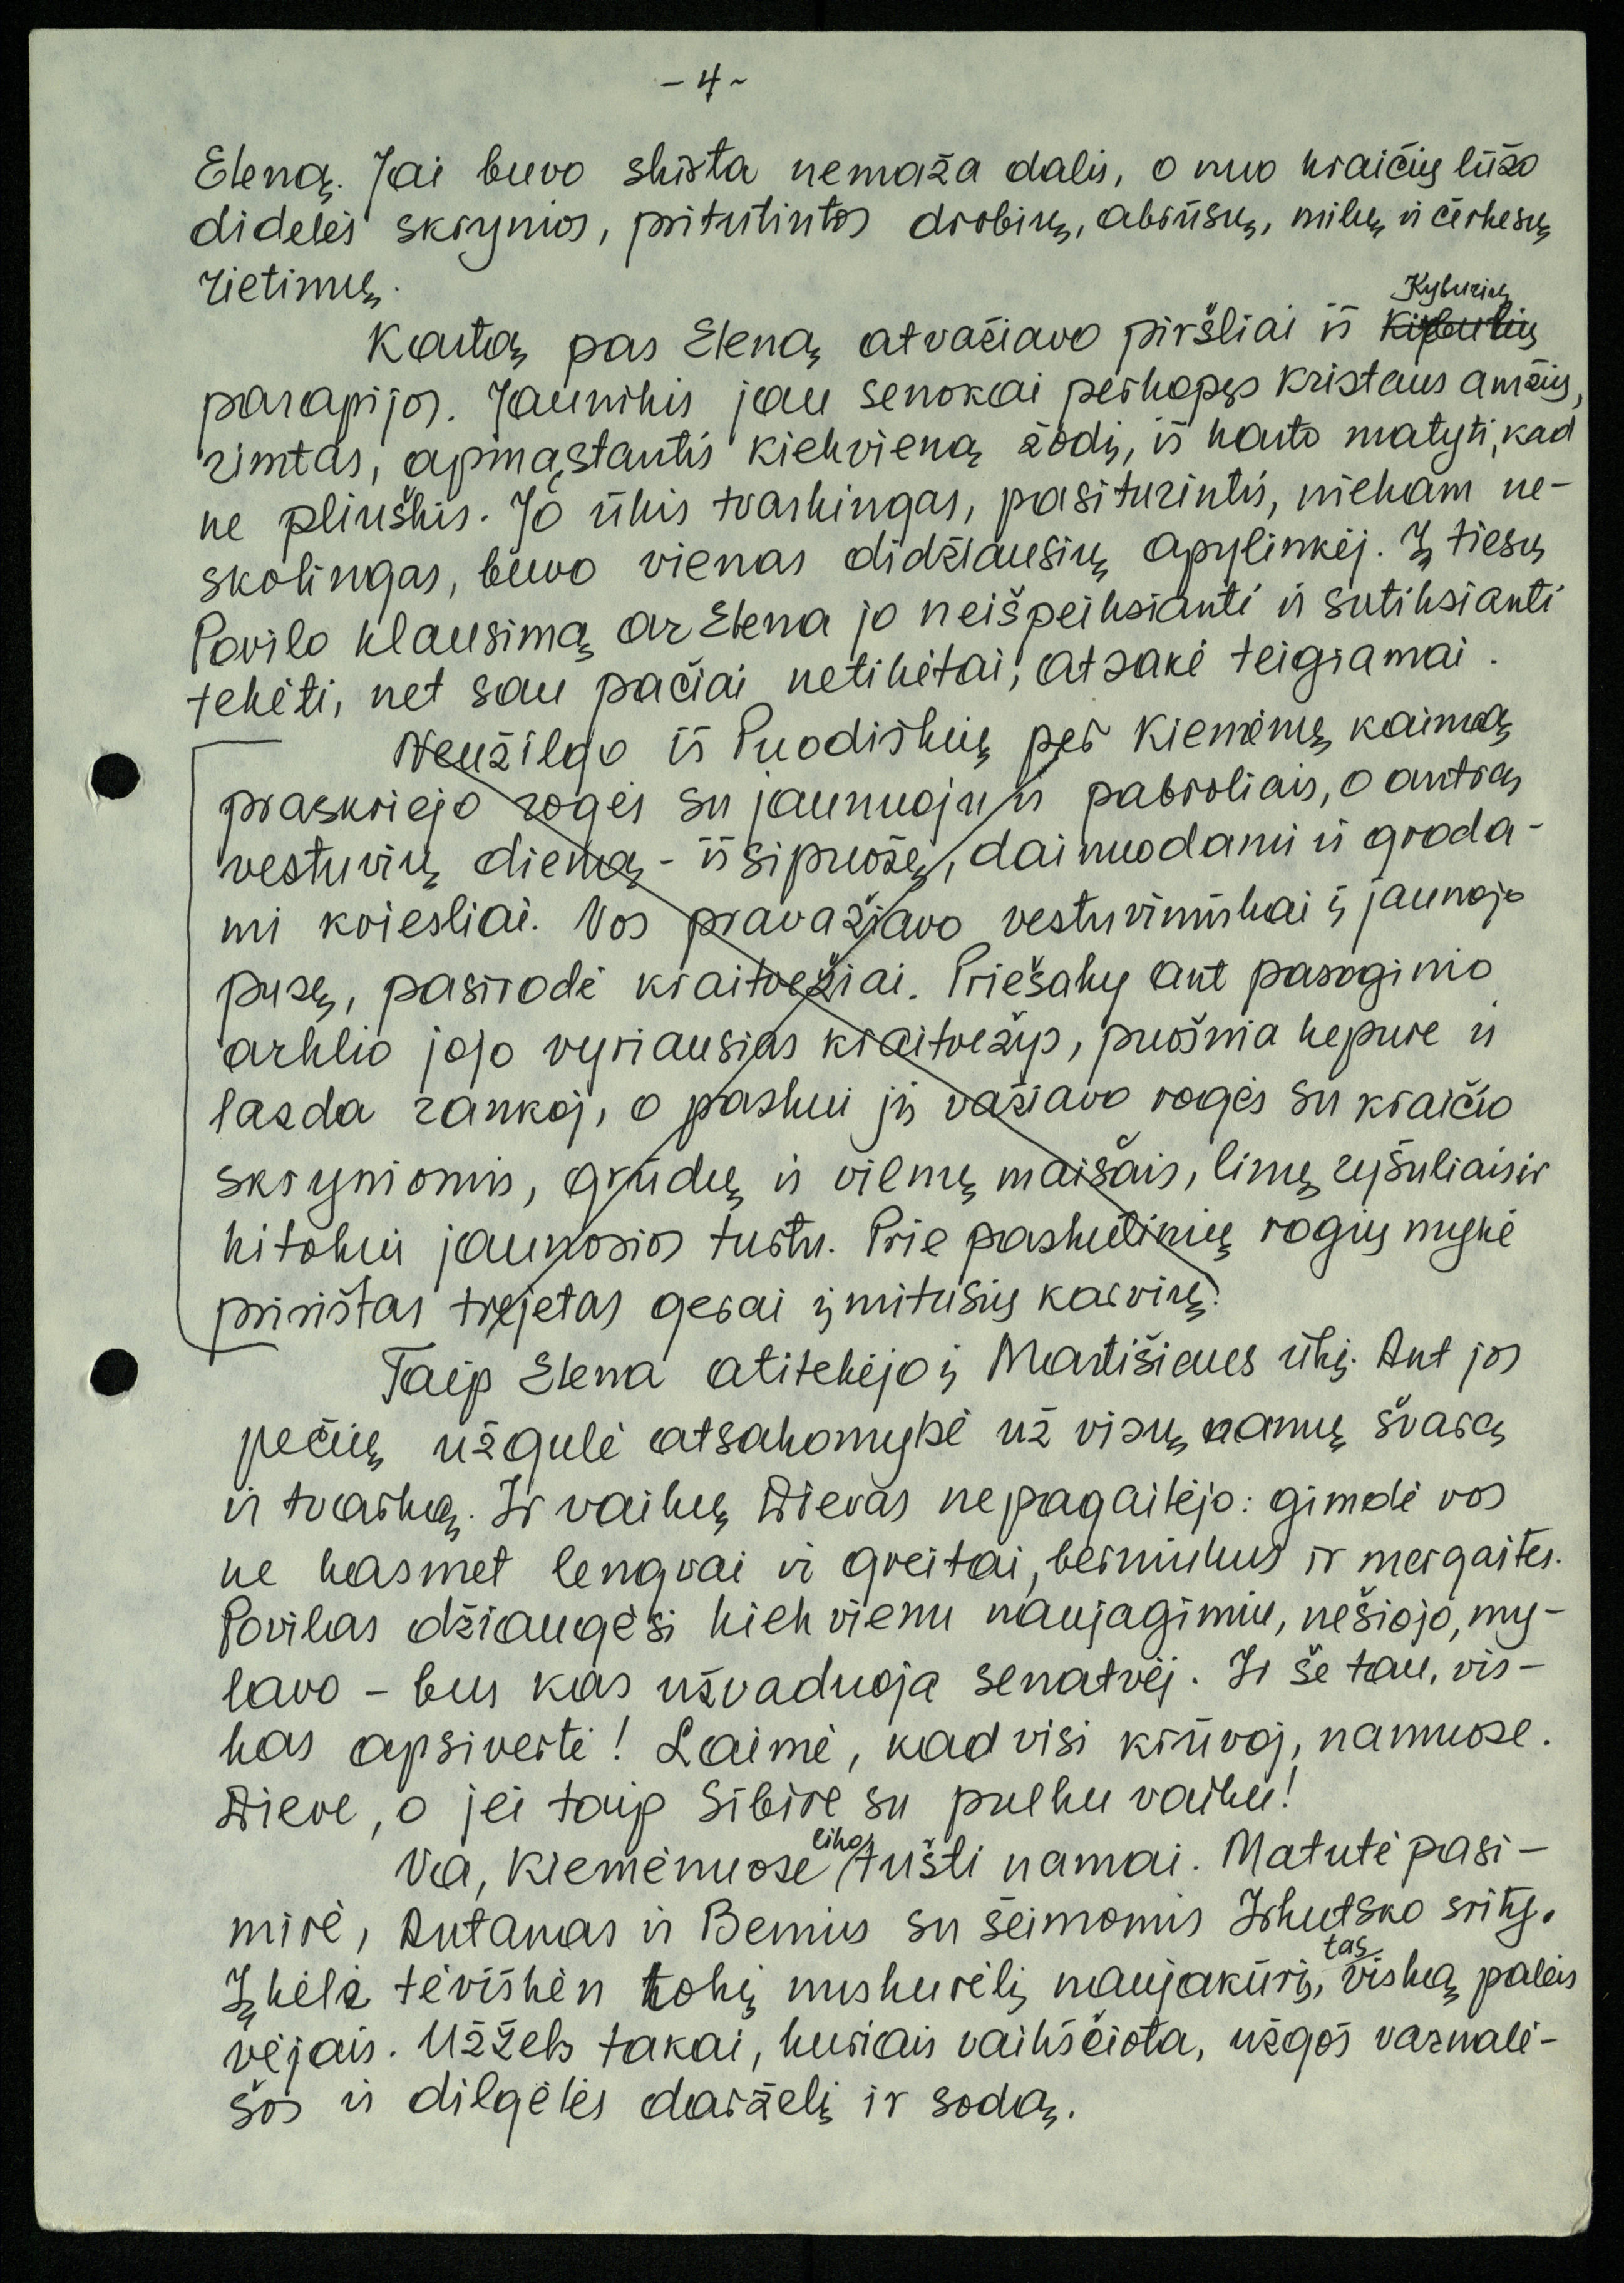 - 4 -
Eleną. Jai buvo skirta nemaža dalis, o nuo kraičių lūžo
didelės skrynios, pritutintos drobių, abrūsų, milų ir čerkesų
rietimų.
Kartą pas Eleną atvažiavo piršliai iš Kyburių
parapijos. Jaunikis jau senokai perkopęs Kristaus amžių,
rimtas, apmąstantis kiekvieną žodį, iš karto matyti, kad
ne pliuškis. Jo ūkis tvarkingas, pasiturintis, niekam ne-
skolingas, buvo vienas didžiausių apylinkėj. Į tiesų
Povilo klausimą ar Elena jo neišpeiksianti ir sutiksianti
tekėti, net sau pačiai netikėtai, atsakė teigiamai.
Neužilgo iš Puodiškių per Kiemėnų kaimą
praskriejo rogės su jaunuoju ir pabroliais, o antrą
vestuvių dieną - išsipuošę, dainuodami ir groda-
mi kviesliai. Vos pravažiavo vestuvininkai į jaunojo
pusę, pasirodė kraitvežiai. Priešaky ant pasoginio
arklio jojo vyriausias kraitvežys, puošnia kepure ir
lazda rankoj, o paskui jį važiavo rogės su kraičio
skryniomis, grūdų ir vilnų maišais, linų ryšuliais ir
kitokiu jaunosios turtu. Prie paskutinių rogių mynė
pririštas trejetas gerai įmitusių karvių.
Taip Elena atitekėjo į Martišiaus ūkį. Ant jos
pečių užgulė atsakomybė už visų namų švarą
ir tvarką. Ir vaikų Dievas nepagailėjo: gimdė vos
ne kasmet lengvai ir greitai, berniukus ir mergaites.
Povilas džiaugėsi kiekvienu naujagimiu, nešiojo, my-
lavo - bus kas užvaduoja senatvėj. Ir še tau, vis-
kas apsivertė! Laimė, kad visi krūvoj, namuose.
Dieve, o jei taip Sibire su pulku vaikų!
Va, Kiemėnuose liko tušti namai. Matutė pasi-
mirė, Antanas ir Bernius su šeimomis Irkutsko srity.
Įkėlė tėviškėn tokį nuskurėlį naujakūrį, tas viską paleis
vėjais. Užžels takai, kuriais vaikščiota, užgoš varnalė-
šos ir dilgėlės darželį ir sodą.